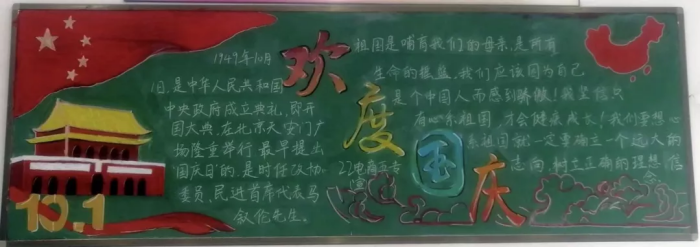 1949年10月
1日,是中华人民共和国
中央政府成立典礼,即开
国大典,在北京天安门广
场隆重举行,最早提出
国庆日的,是时任政协
委员、民进首席代表马
叙伦先生。
欢度国庆
祖国是哺育我们的母亲,是所有
生命的摇篮,我们应该因为自己
是个中国人而感到骄傲!我坚信只
有心系祖国,才会健康成长!我们要想心
系祖国就一定要确立一个远大的
志向,树立正确的理想信
念
22电商五专
10.1